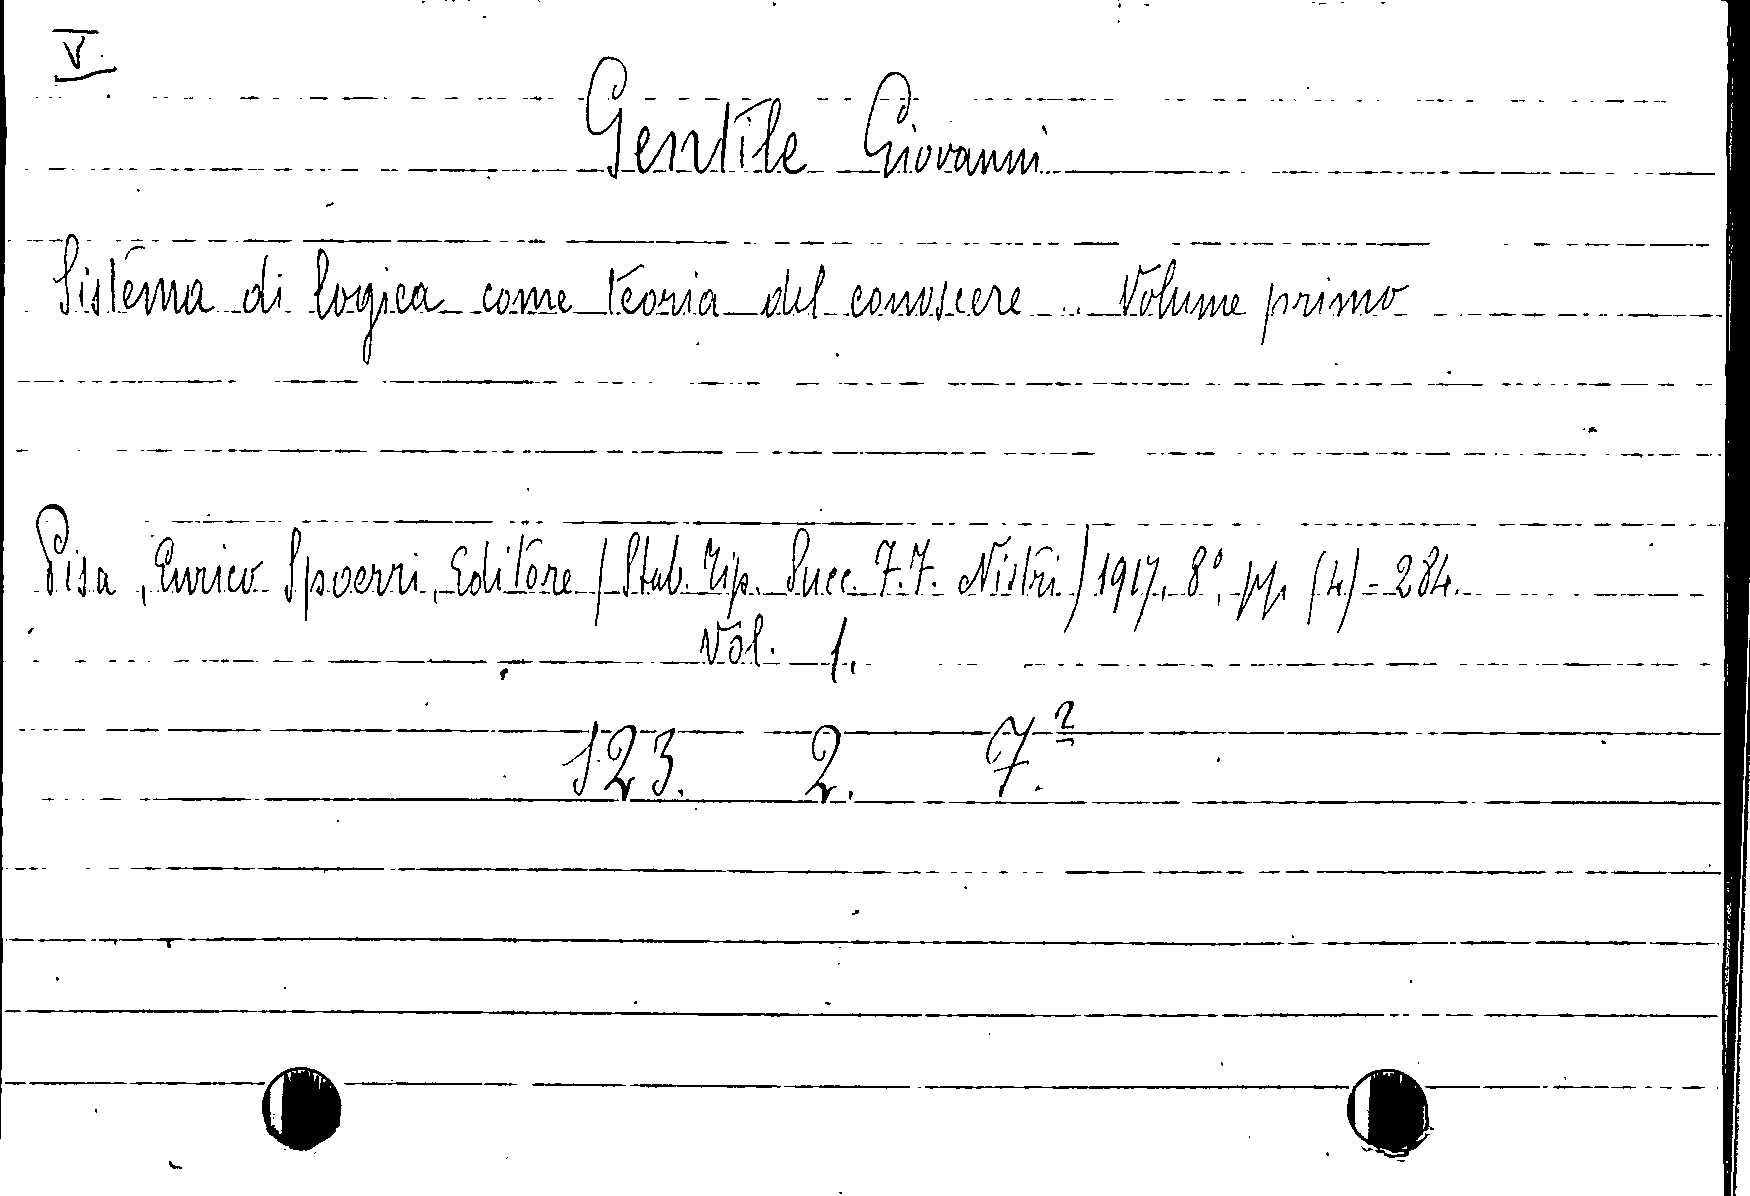 V
Gentile Giovanni
Sistema di logica come teoria del conoscere .. Volume primo
Pisa, Enrico Spoerri, Editore (Stab. Tip. Succ. F.F. Nistri) 1917, 8°, pp. (4)-284.
Vol. 1.
123. 2. 7.²